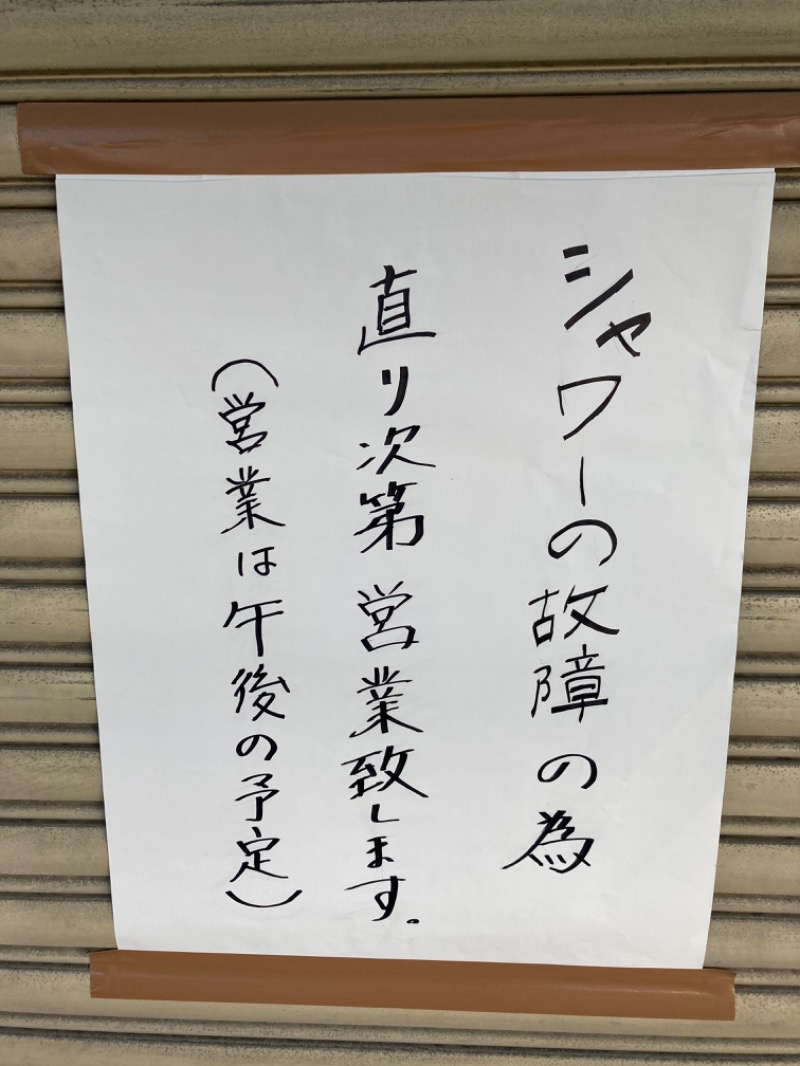 シャワーの故障の為
直り次第 営業致します。
(営業は午後の予定)